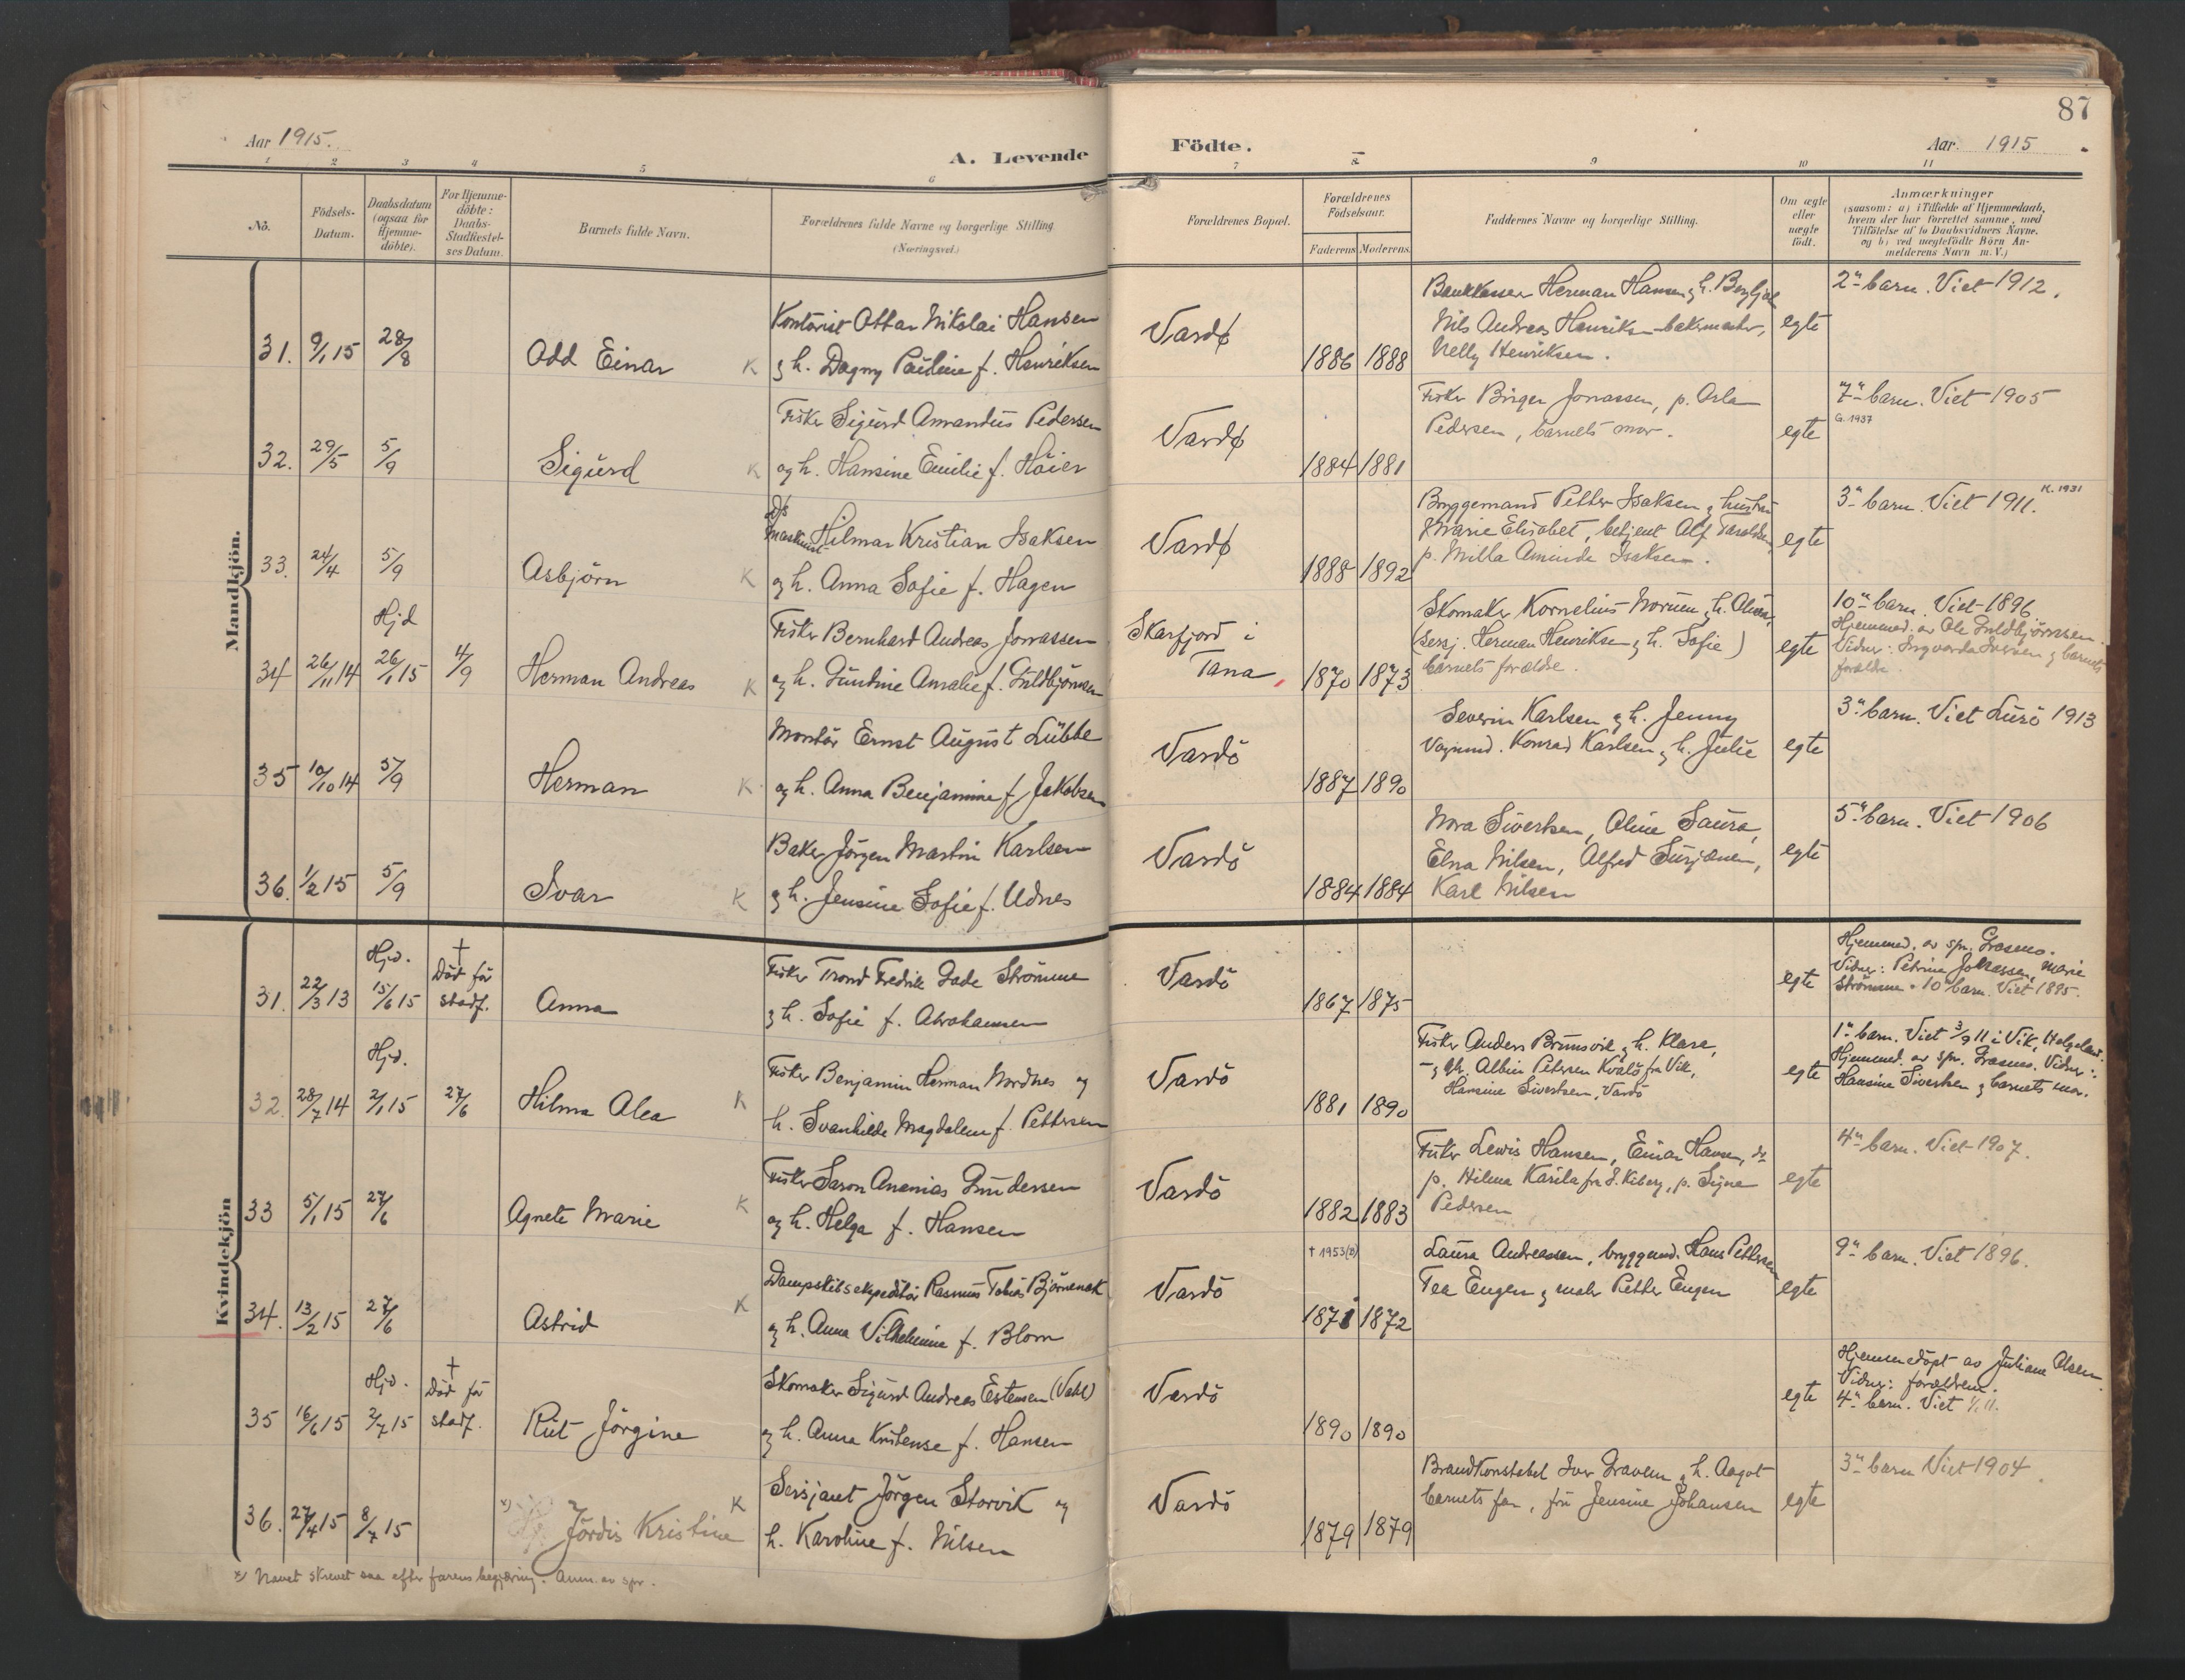 87
Aar 1915.
A. Levende Födte.
Aar 1915
1 2 3 4 5 6 7 8 9 10 11
No.
Födsels-Datum.
Daabsdatum (ogsaa for Hjemme-döbte).
For Hjemme-döbte: Daabs-Stadfæstel-ses Datum.
Barnets fulde Navn.
Forældrenes fulde Navne og borgerlige Stilling (Næringsvei.)
Forældrenes Bopæl.
Forældrenes Födselsaar.
Faderens Moderens
Faddernes Navne og borgerlige Stilling.
Om ægte eller uægte födt.
Anmærkninger (saasom: a) i Tilfælde af Hjemmedaab, hvem der har forrettet samme, med Tilföielse af to Daabsvidners Navne, og b) ved uægtefödte Börn Anmelderens Navn m. V.)
Mandkjön.
31. 9/1 15 28/8 Odd Einar K
Kontorist Ottar Nikolai Hansen
og h. Dagny Pauline f. Henriksen
Vardø 1886 1888
Bankkasser Herman Hansen og h.
Nils Andreas Henriksen bakermester,
Nelly Henriksen.
egte
2net barn. Viet 1912.
32. 29/5 5/9 Sigurd K
Fisker Sigurd Amandus Pedersen
og h. Hansine Emilie f. Höier
Vardø 1884 1881
Fisker Birger Jonassen, p. Asla
Pedersen, barnets mor.
egte
7de barn. Viet 1905
G. 1937
33. 24/4 5/9 Asbjörn K
D/s
Maskinist Hilmar Kristian Isaksen
og h. Anna Sofie f. Hagen
Vardø 1888 1892
Bryggemand Petter Isaksen og hustru
Marie Elisabet, betjent Alf
p. Milla Aminda Isaksen.
egte
3de barn. Viet 1911. K. 1931
34 26/11 14 Hjd 26/1 15 4/9 Herman Andreas K
Fisker Bernhard Andreas Jonassen
og h. Gundine Amalie f. Guldbjörnsen
Skarfjord i
Tana, 1870 1873
Skomaker Kornelius h.
(Sersj. Herman Henriksen og h. Sofie)
barnets forældre.
egte
10de barn. Viet 1896
Hjemmed. av Ole Guldbjörnsen.
Vidner: Ingvarda Iversen og barnets
forældre.
35 10/10 14 5/9 Herman K
Montör Ernst August Lübbe
og h. Anna Benjamine f. Jakobsen
Vardö 1887 1890
Severin Karlsen og h. Jenny
Vognmd. Konrad Karlsen og h. Julie
egte
3de barn. Viet Lurö 1913
36. 1/2 15 5/9 Ivar K
Baker Jörgen Martin Karlsen
og h. Jensine Sofie f. Udnes
Vardö 1884 1884
Nora Sivertsen, Oline Saura,
Elna Nilsen, Alfred
Karl Nilsen
egte
5te barn. Viet 1906
Kvindekjön
31. 22/3 13 Hjd. 15/6 15 † Död før stadf. Anna
Fisker Trond Fredrik Gade Strömme
og h. Sofie f. Abrahamsen
Vardö 1867 1875
egte
Hjemmed. av spr. Grasmo.
Vidner: Petrine Johnassen, Marie
Strömme. 10de barn. Viet 1895.
32. 28/7 14 Hjd. 2/1 15 27/6 Hilma Alea K
Fisker Benjamin Herman Nordnes og
h. Svanhilde Magdalene f. Pettersen
Vardö 1881 1890
Fisker Anders Brunsvik og h. Klara,
Albin Petersen Kvalö fra Vik,
Hansine Sivertsen, Vardö
egte
1ste barn. Viet 3/9 11 i Vik, Helgeland.
Hjemmed. av spr. Grasmo. Vidner:
Hansine Sivertsen og barnets mor.
33 5/1 15 27/6 Agnete Marie K
Fisker Saron Ananias Gundersen
og h. Helga f. Hansen
Vardö 1882 1883
Fisker Lewis Hansen, Einar Hansen, do
p. Hilma Karila fra S. Kiberg, p. Signe
Pedersen
egte
4de barn. Viet 1907.
34. 13/2 15 27/6 Astrid K
Dampskibsekspeditör Rasmus Tobias Björnenak
og h. Anna Vilhelmine f. Blom
Vardö † 1953 (?) 1871 1872
Laura Andreassen, bryggemd. Hans Pettersen
Tea Eugen og maler Petter Eugen
egte
9de barn. Viet 1896.
35 16/6 15 Hjd. 2/7 15 † Död før stadf. Rut Jörgine
Skomaker Sigurd Andreas Estensen (Vahl)
og h. Anna Kristense f. Hansen
Vardö 1890 1890
egte
Hjemmedöpt av Juliane Olsen.
Vidner: forældrene.
4de barn. Viet
36. 27/4 15 8/7 15 x) Jördis Kristine K
Sersjant Jörgen Storvik og
h. Karoline f. Nilsen
Vardö 1879 1879
Brandkonstabel Iver Graven og h. Aagot
barnets far, fru Jensine Johansen
egte
3de barn Viet 1904.
x) Navnet skrevet saa efter farens begjæring. Anm. av spr.